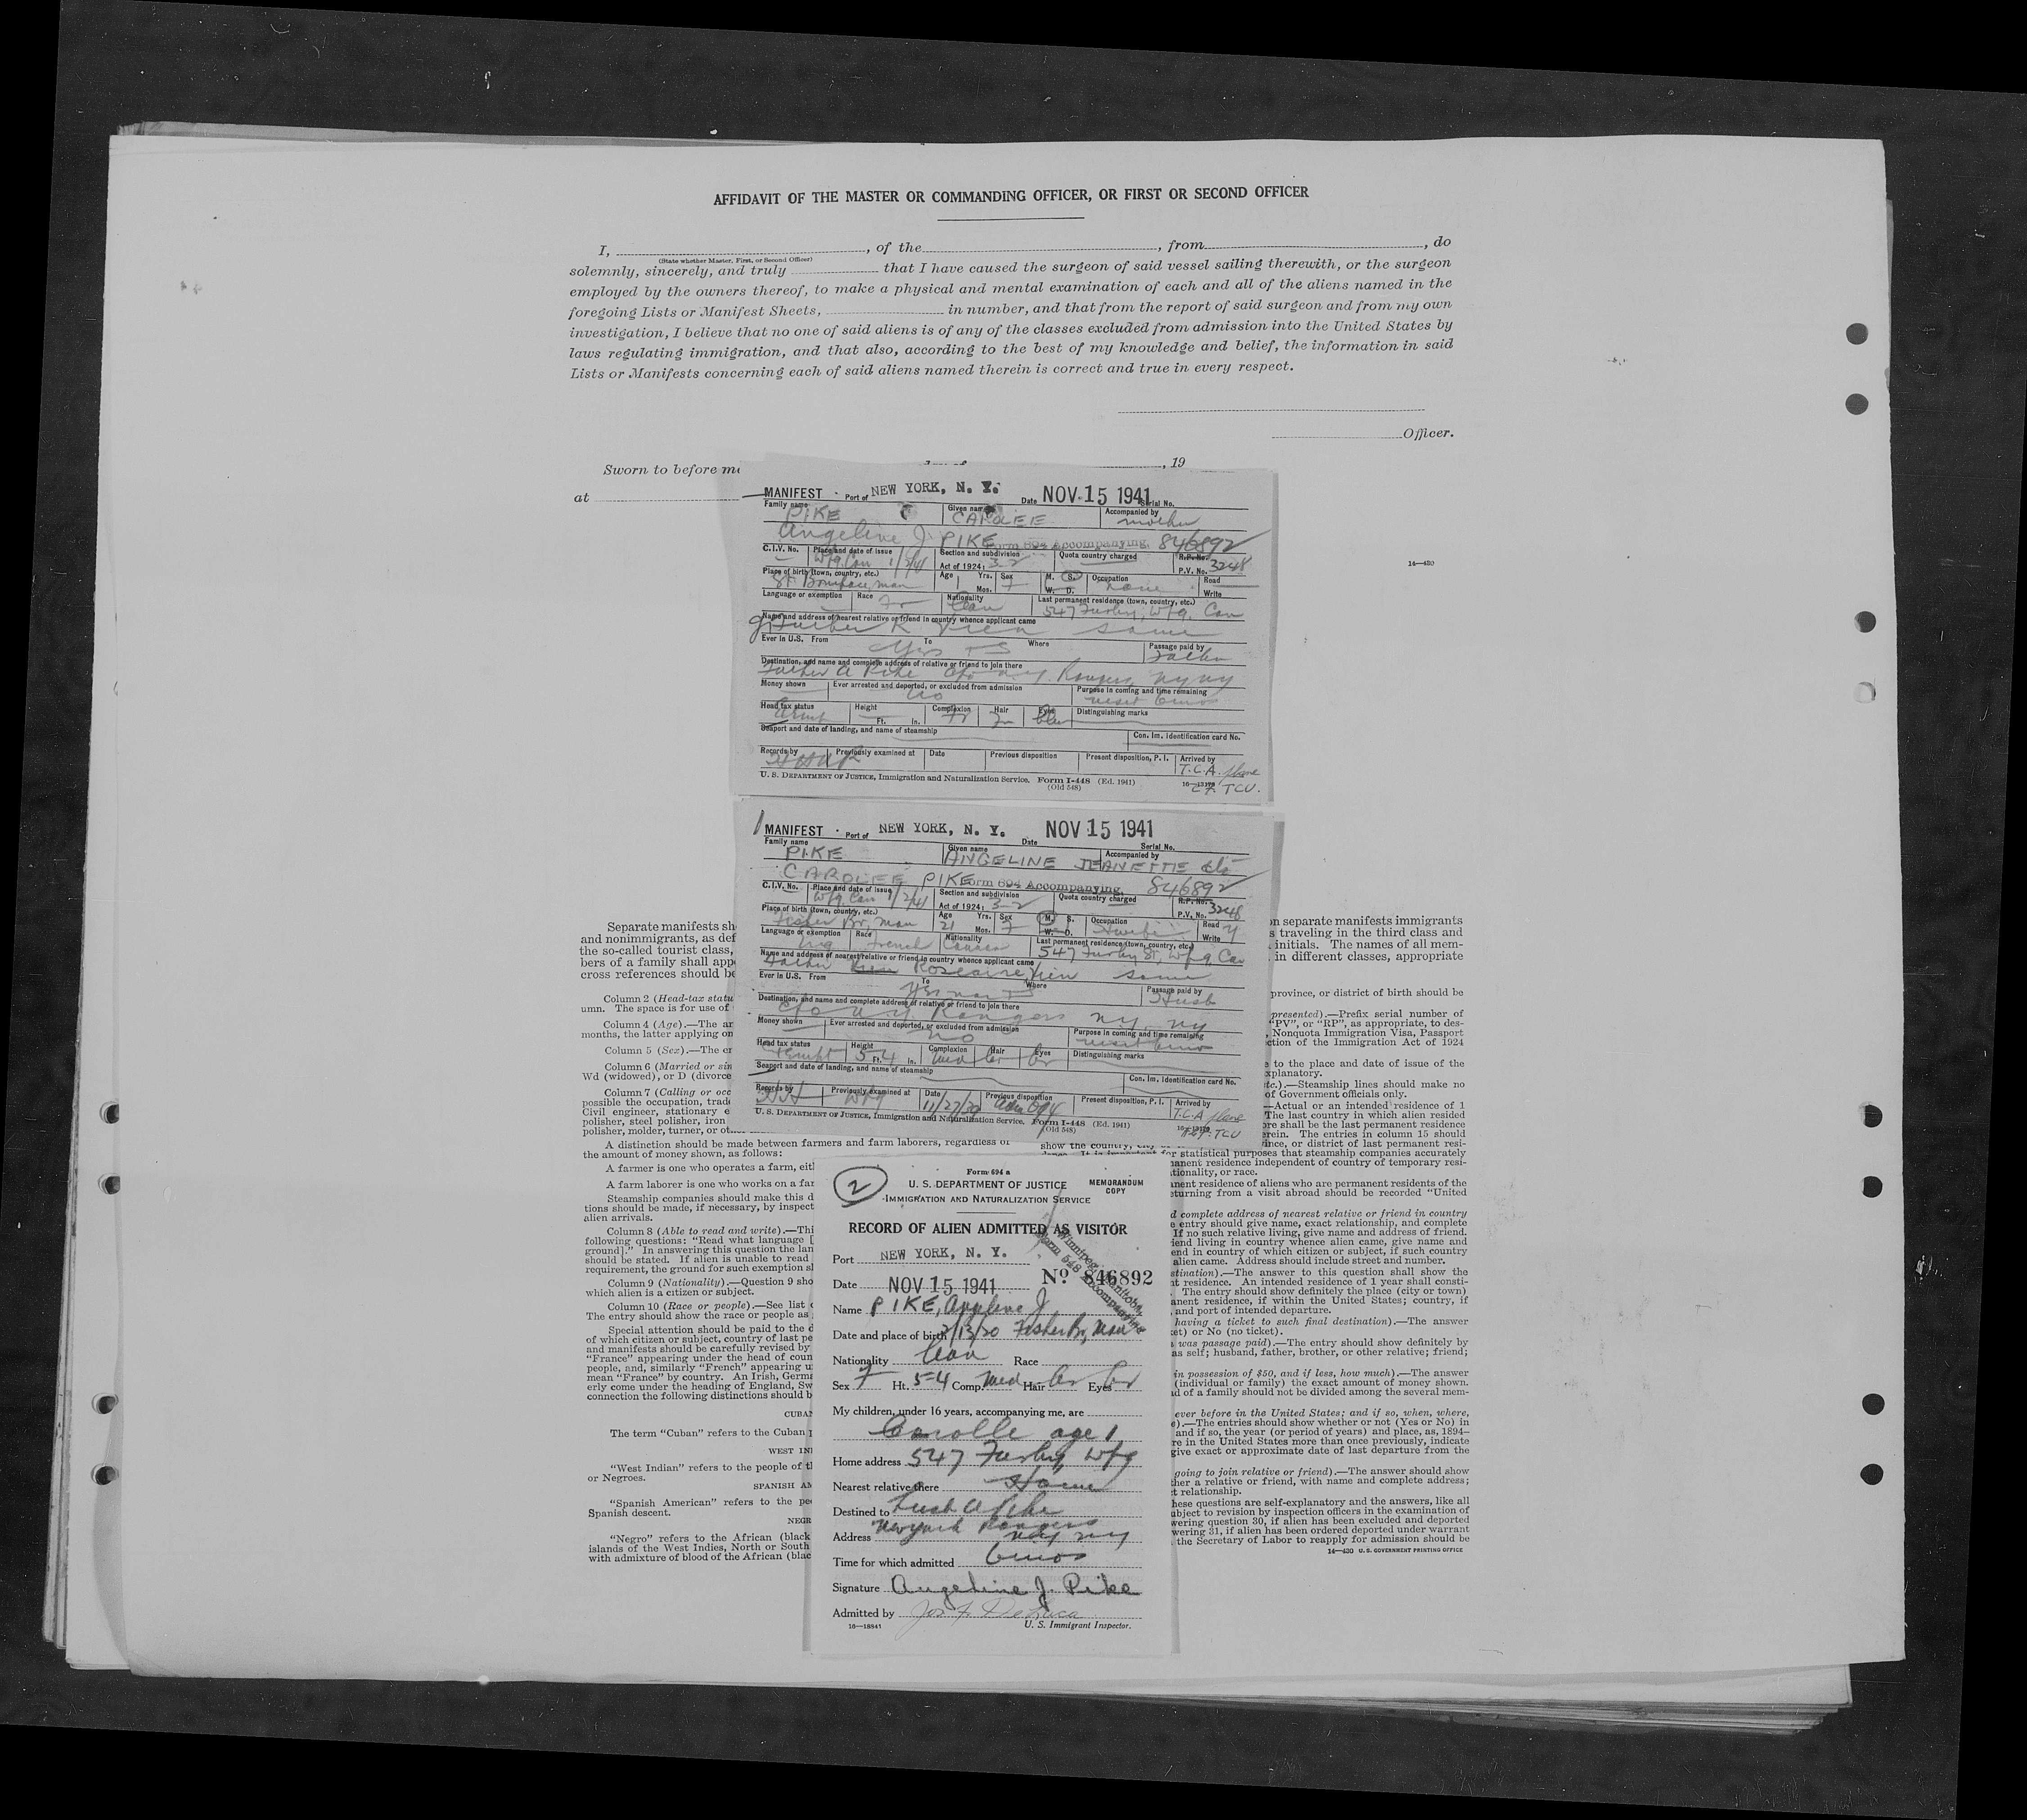 AFFIDAVIT OF THE MASTER OR COMMANDING OFFICER, OR FIRST OR SECOND OFFICER
I, , of the , from , do
(State whether Master, First, or Second Officer)
solemnly, sincerely, and truly that I have caused the surgeon of said vessel sailing therewith, or the surgeon
employed by the owners thereof, to make a physical and mental examination of each and all of the aliens named in the
foregoing Lists or Manifest Sheets, in number, and that from the report of said surgeon and from my own
investigation, I believe that no one of said aliens is of any of the classes excluded from admission into the United States by
laws regulating immigration, and that also, according to the best of my knowledge and belief, the information in said
Lists or Manifests concerning each of said aliens named therein is correct and true in every respect.
Officer.
Sworn to before me , 19
at
14—430
MANIFEST Port of NEW YORK, N. Y. Date NOV 15 1941 Serial No.
Family name Given name Accompanied by
PIKE CAROLEE mother
Angeline J. PIKE Form 694 Accompanying. 846892
C.I.V. No. Place and date of issue Section and subdivision Quota country charged R.P. No.
Wpg. Can 1/2/41 Act of 1924: 3-2 P.V. No. 3248
Place of birth (town, country, etc.) Age Yrs. Sex M. S. Occupation Read
St Boniface, man 1 Mos. F W. D. none Write
Language or exemption Race Nationality Last permanent residence (town, country, etc.)
Fr Can 547 Furby, Wpg. Can
Name and address of nearest relative or friend in country whence applicant came
same
Ever in U.S. From To Where Passage paid by
Yes Father
Destination, and name and complete address of relative or friend to join there
Father A Pike c/o N.Y. Rangers, NY NY
Money shown Ever arrested and deported, or excluded from admission Purpose in coming and time remaining
No visit 6mos
Head tax status Height Complexion Hair Eyes Distinguishing marks
Ft. In.
Seaport and date of landing, and name of steamship Con. Im. Identification card No.
Records by Previously examined at Date Previous disposition Present disposition, P. I. Arrived by
T.C.A. plane
U. S. DEPARTMENT OF JUSTICE, Immigration and Naturalization Service. Form I-448 (Ed. 1941)
(Old 548)
TCU.
MANIFEST Port of NEW YORK, N. Y. Date NOV 15 1941 Serial No.
Family name Given name Accompanied by
PIKE ANGELINE JEANETTE
CAROLEE PIKE Form 694 Accompanying. 846892
C.I.V. No. Place and date of issue Section and subdivision Quota country charged R.P. No.
Wpg. Can 1/2/41 Act of 1924: 3-2 P.V. No. 3248
Place of birth (town, country, etc.) Age Yrs. Sex M. S. Occupation Read Y
Fisher Br, Man 21 Mos. F W. D. Hwife Write Y
Language or exemption Race Nationality Last permanent residence (town, country, etc.)
Eng French 547 Furby St, Wpg Can
Name and address of nearest relative or friend in country whence applicant came
Father same
Ever in U.S. From To Where Passage paid by
Yes Husb
Destination, and name and complete address of relative or friend to join there
c/o N.Y. Rangers NY, NY
Money shown Ever arrested and deported, or excluded from admission Purpose in coming and time remaining
No visit 6mos
Head tax status Height Complexion Hair Eyes Distinguishing marks
Exempt 5 Ft. 4 In. Med Br Br
Seaport and date of landing, and name of steamship Con. Im. Identification card No.
Records by Previously examined at Date Previous disposition Present disposition, P. I. Arrived by
Wpg 11/27/39 Adm 694 T.C.A plane
U. S. DEPARTMENT OF JUSTICE, Immigration and Naturalization Service. Form I-448 (Ed. 1941)
(Old 548)
TCU
2
Form 694 a
U. S. DEPARTMENT OF JUSTICE MEMORANDUM COPY
IMMIGRATION AND NATURALIZATION SERVICE
RECORD OF ALIEN ADMITTED AS VISITOR
Winnipeg, Manitoba.
Form 548 Accompanying
Port NEW YORK, N. Y.
Date NOV 15 1941 No 846892
Name PIKE, Angeline J
Date and place of birth 2/13/20 Fisher Br, Man
Nationality Can Race
Sex F Ht. 5-4 Comp. Med Hair Br Eyes Br
My children, under 16 years, accompanying me, are
Carolle age 1
Home address 547 Furby, Wpg
Nearest relative there Same
Destined to Husb A Pike
Address New York Rangers NY, NY
Time for which admitted 6mos
Signature Angeline J. Pike
Admitted by Jos F. DeLuca
16—18841 U. S. Immigrant Inspector.
Separate manifests sh
and nonimmigrants, as def
the so-called tourist class,
bers of a family shall app
cross references should be
Column 2 (Head-tax statu
umn. The space is for use of
Column 4 (Age).—The an
months, the latter applying on
Column 5 (Sex).—The en
Column 6 (Married or sin
Wd (widowed), or D (divorce
Column 7 (Calling or occ
possible the occupation, trad
Civil engineer, stationary e
polisher, steel polisher, iron
polisher, molder, turner, or ot
A distinction should be made between farmers and farm laborers, regardless of
the amount of money shown, as follows:
A farmer is one who operates a farm, eit
A farm laborer is one who works on a far
Steamship companies should make this d
tions should be made, if necessary, by inspect
alien arrivals.
Column 8 (Able to read and write).—Thi
following questions: "Read what language [
ground]." In answering this question the lan
should be stated. If alien is unable to read
requirement, the ground for such exemption s
Column 9 (Nationality).—Question 9 sho
which alien is a citizen or subject.
Column 10 (Race or people).—See list o
The entry should show the race or people as
Special attention should be paid to the d
of which citizen or subject, country of last pe
and manifests should be carefully revised by
"France" appearing under the head of coun
people, and, similarly "French" appearing u
mean "France" by country. An Irish, Germa
erly come under the heading of England, Sw
connection the following distinctions should b
CUBA
The term "Cuban" refers to the Cuban p
WEST IN
"West Indian" refers to the people of th
or Negroes.
SPANISH AM
"Spanish American" refers to the pe
Spanish descent.
NEGR
"Negro" refers to the African (black
islands of the West Indies, North or South
with admixture of blood of the African (blac
n separate manifests immigrants
s traveling in the third class and
initials. The names of all mem-
in different classes, appropriate
province, or district of birth should be
presented).—Prefix serial number of
"PV", or "RP", as appropriate, to des-
Nonquota Immigration Visa, Passport
ction of the Immigration Act of 1924
e to the place and date of issue of the
xplanatory.
tc.).—Steamship lines should make no
of Government officials only.
—Actual or an intended residence of 1
The last country in which alien resided
re shall be the last permanent residence
rein. The entries in column 15 should
show the country, city ince, or district of last permanent resi-
dence. It is important for statistical purposes that steamship companies accurately
anent residence independent of country of temporary resi-
tionality, or race.
nent residence of aliens who are permanent residents of the
eturning from a visit abroad should be recorded "United
d complete address of nearest relative or friend in country
e entry should give name, exact relationship, and complete
If no such relative living, give name and address of friend.
iend living in country whence alien came, give name and
end in country of which citizen or subject, if such country
alien came. Address should include street and number.
stination).—The answer to this question shall show the
nt residence. An intended residence of 1 year shall consti-
The entry should show definitely the place (city or town)
anent residence, if within the United States; country, if
and port of intended departure.
having a ticket to such final destination).—The answer
et) or No (no ticket).
was passage paid).—The entry should show definitely by
as self; husband, father, brother, or other relative; friend;
in possession of $50, and if less, how much).—The answer
(individual or family) the exact amount of money shown.
d of a family should not be divided among the several mem-
ever before in the United States; and if so, when, where,
e).—The entries should show whether or not (Yes or No) in
and if so, the year (or period of years) and place, as, 1894–
re in the United States more than once previously, indicate
give exact or approximate date of last departure from the
going to join relative or friend).—The answer should show
her a relative or friend, with name and complete address;
t relationship.
hese questions are self-explanatory and the answers, like all
ubject to revision by inspection officers in the examination of
wering question 30, if alien has been excluded and deported
wering 31, if alien has been ordered deported under warrant
the Secretary of Labor to reapply for admission should be
14—430 U. S. GOVERNMENT PRINTING OFFICE